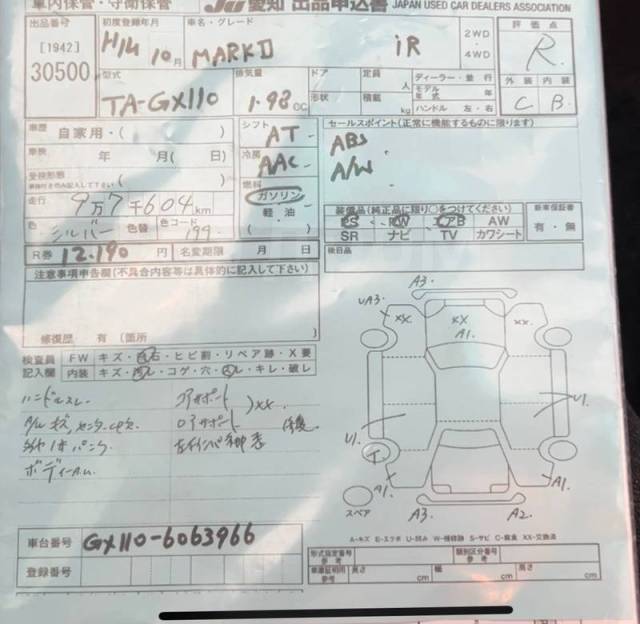 車内保管・守衛保管 JU 愛知 出品申込書 JAPAN USED CAR DEALERS ASSOCIATION
出品番号 初度登録年月 車名・グレード 2WD・4WD 評価点
[1942] 30500 H14 10月 MARKⅡ iR R
型式 排気量 ドア 定員 人 ディーラー・並行 外装 内装
TA-GX110 1.98 CC 形状 積載 kg モデル年式 年 ハンドル 左・右 C B
車歴 自家用・( ) シフト AT セールスポイント(正常に機能するものに限ります)
車検 年 月( 日) 冷房 AAC ABS
受検形態 ( ) 燃料 ガソリン A/W
走行 9万7千604km 軽油
色 シルバー 色替 色コード 199 ( ) 装備品(純正品に限り○をつけてください) 新車保証書
PS PW エアB AW 有・無
SR ナビ TV カワシート
R券 12.190 円 名変期限 月 日 後日品
注意事項申告欄(不具合内容等は具体的に記入して下さい)
修復歴 有(箇所
検査員記入欄 FW キズ・飛石・ヒビ割・リペア跡・X要
内装 キズ・汚レ・コゲ・穴・凸レ・キレ・破レ
ハンドルスレ
ボディー
A3. UA3. XX XX A1. XX
U1. U1.
A1. A3. A2. A1.
スペア
A-キズ E-エクボ U-凹み W-補修跡 S-サビ C-腐食 XX-交換済
車台番号 GX110-6063966
登録番号
形式指定番号 参考 類別区分番号 参考
車庫証明用 参考 長さ cm 幅 cm 高さ cm